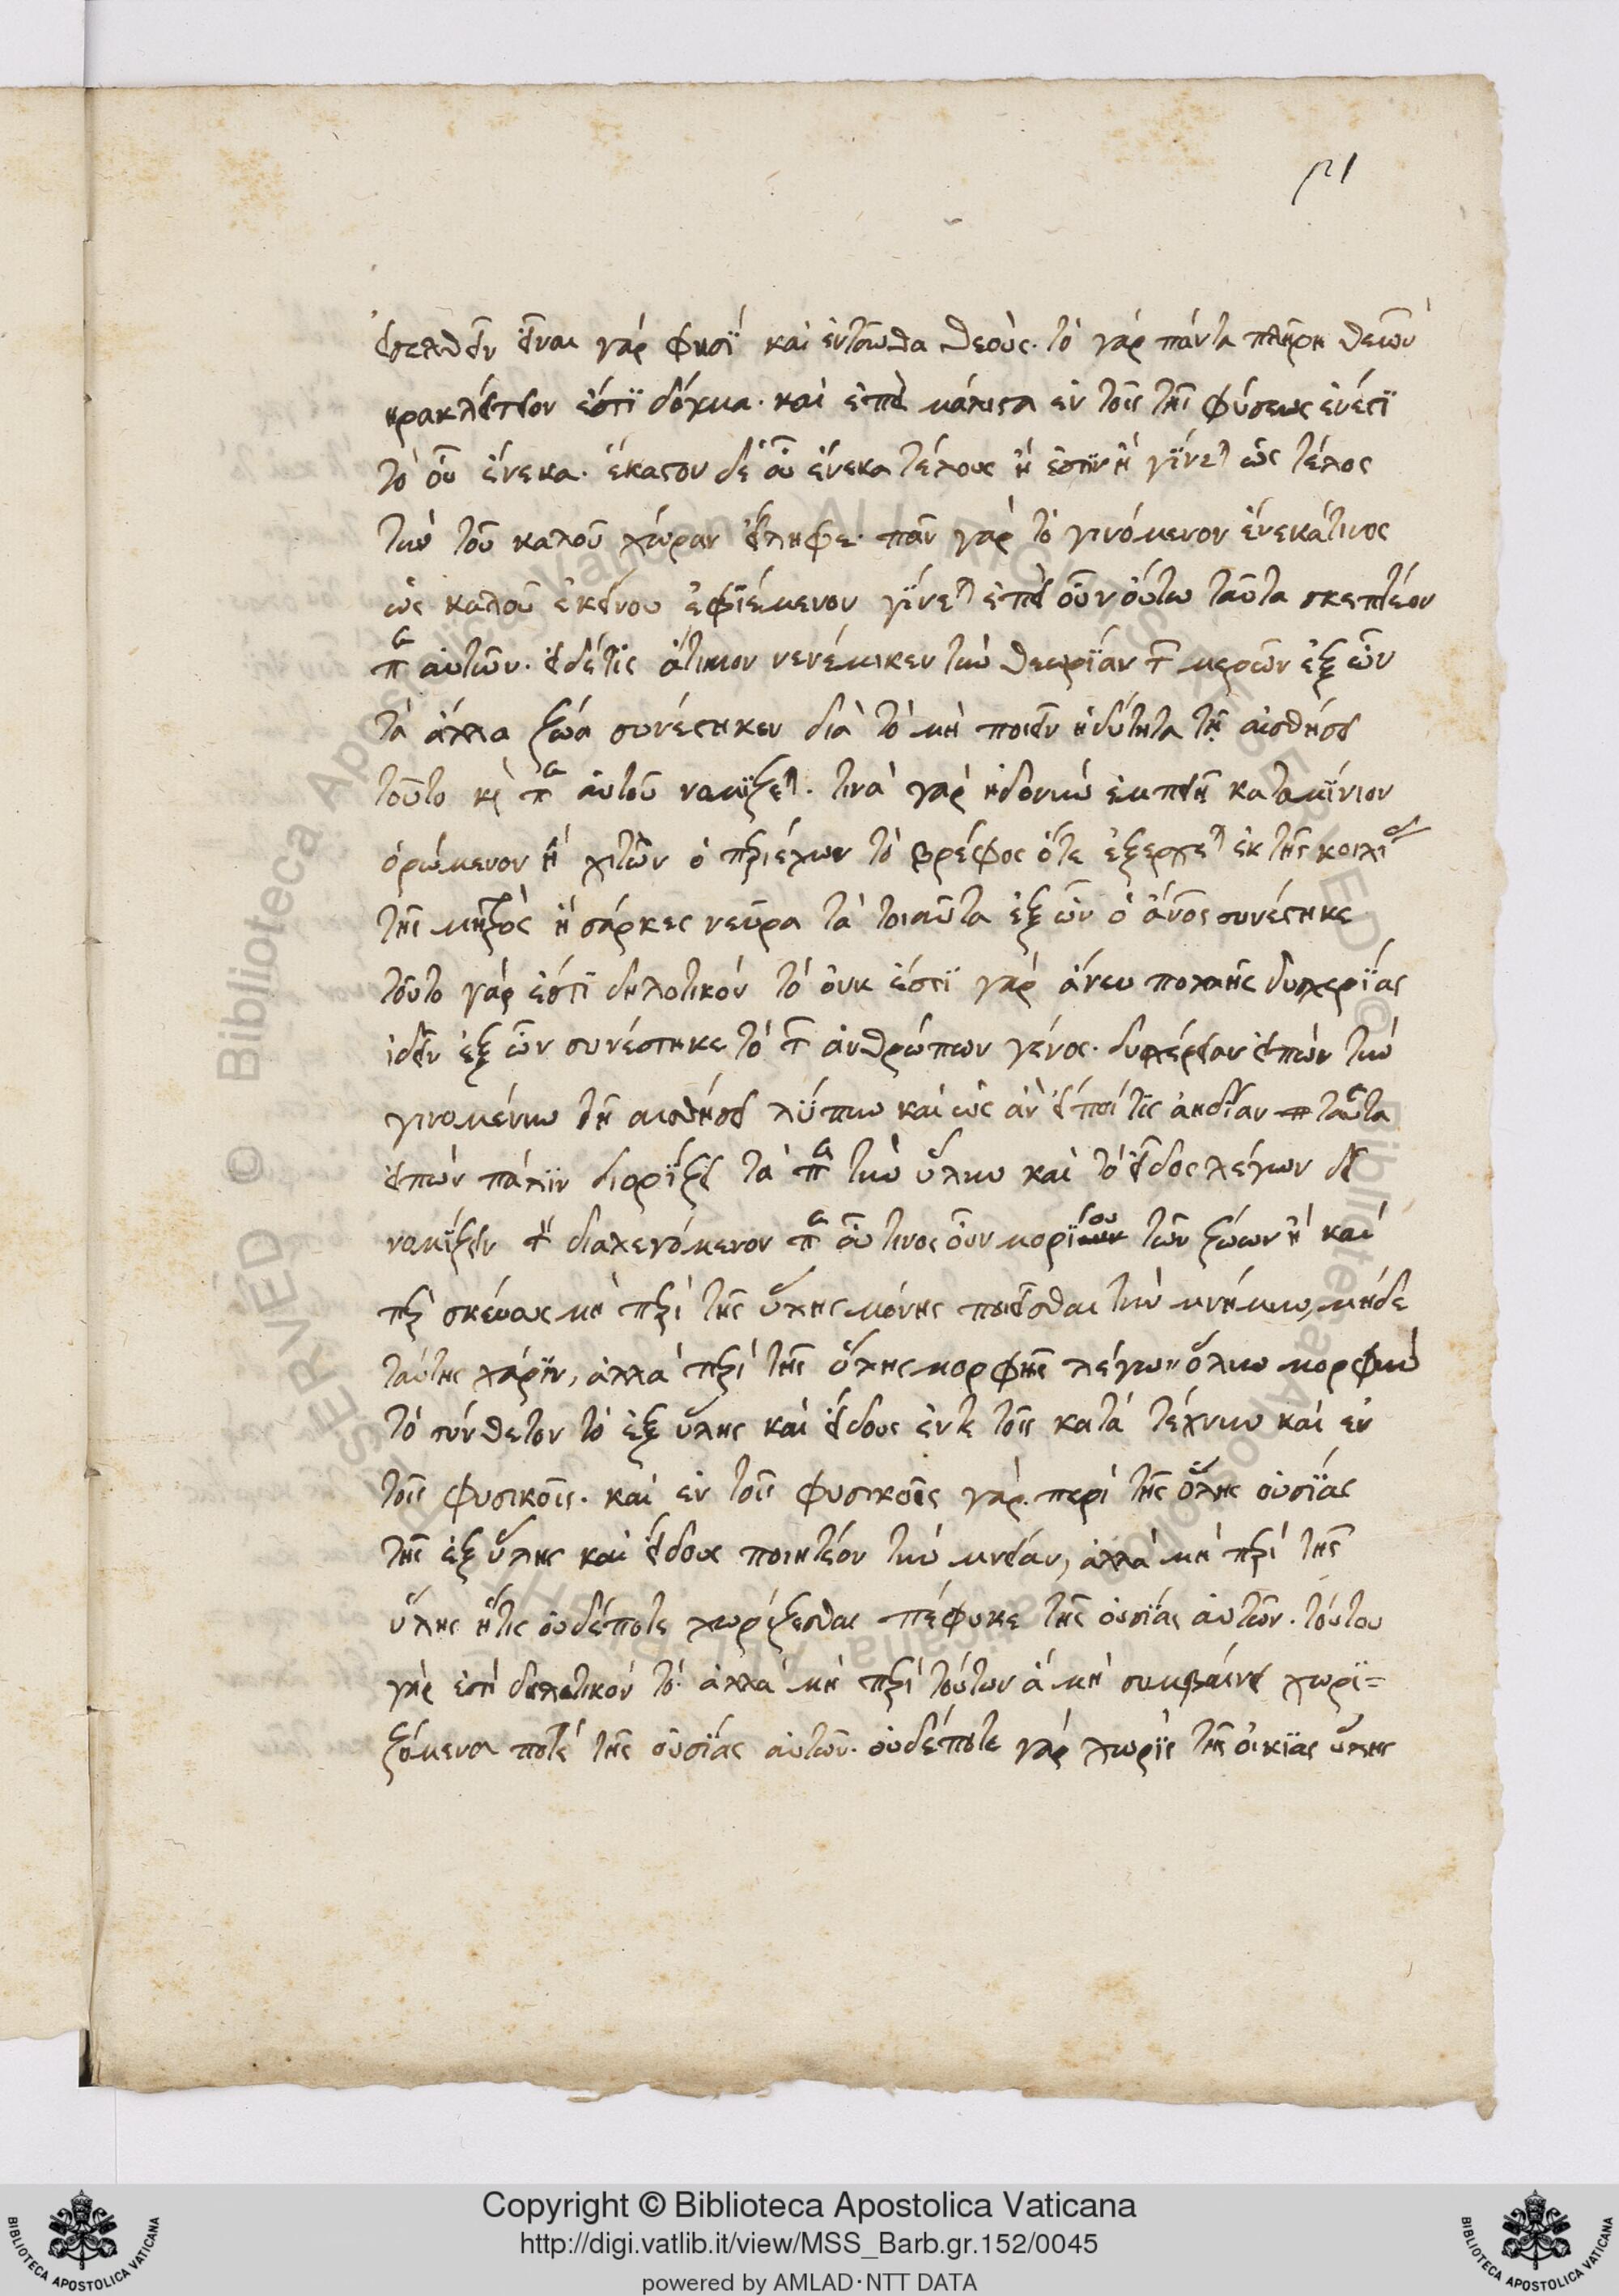 21
εἰσελθεῖν εἶναι γάρ φησὶ καὶ ἐνταῦθα θεούς. τὸ γὰρ πάντα πλήρη θεῶν
ηρακλείτειον ἐστὶ δόγμα. καὶ ἐπεὶ μάλιστα ἐν τοῖς τῆς φύσεως ἐνέστι
τὸ οὗ ἕνεκα. ἕκαστον δὲ οὗ ἕνεκα τέλους ἢ ἐστὶν ἢ γίνεται ὡς τέλος
τὴν τοῦ καλοῦ χώραν εἴληφε. πᾶν γὰρ τὸ γινόμενον ἕνεκά τινος
ὡς καλοῦ ἐκείνου ἐφιέμενον γίνεται ἐπεὶ οὖν οὕτω ταῦτα σκεπτέον
περὶ αὐτῶν. εἰ δέ τις ἄτιμον νενόμικεν τὴν θεωρίαν τῶν μερῶν ἐξ ὧν
τὰ ἄλλα ζῶα συνέστηκεν διὰ τὸ μὴ ποιεῖν ἡδύτητα τῇ αἰσθήσει
τοῦτο καὶ περὶ αὐτοῦ νομιζέτω. τινὰ γὰρ ἡδονὴν ἐμποιεῖ καταμίνιον
ὁρώμενον ἢ χιτὼν ὁ περιέχων τὸ βρέφος ὅτε ἐξέρχεται ἐκ τῆς κοιλίας
τῆς μητρὸς ἢ σάρκες νεῦρα τὰ τοιαῦτα ἐξ ὧν ὁ ἄνος συνέστηκε
τοῦτο γάρ ἐστι δηλοτικὸν τὸ οὐκ ἐστὶ γὰρ ἄνευ πολλῆς δυσχερίας
ἰδεῖν ἐξ ὧν συνέστηκε τὸ τῶν ἀνθρώπων γένος. δυσχέρειαν εἰπὼν τὴν
γινομένην τῇ αισθήσει λύπην καὶ ὡς ἂν εἴποι τις ἀηδίαν ταῦτα
εἰπὼν πάλιν διορίζει τὰ περὶ τὴν ὕλην καὶ τὸ εἶδος λέγων δεῖ
νομίζειν τὸν διαλεγόμενον περὶ οὗ τινος οὖν μορίου τῶν ζώων ἢ καὶ
περὶ σκέυους μὴ περὶ τῆς ὕλης μόνης ποιεῖσθαι τὴν μνήμην, μήδε
ταύτης χάριν, ἀλλὰ περὶ τῆς ὅλης μορφῆς λέγων ὅλην μορφὴν
τὸ σύνθετον τὸ ἐξ ὕλης καὶ εἴδους ἔν τε τοῖς κατὰ τέχνην καὶ ἐν
τοῖς φυσικοῖς. καὶ ἐν τοῖς φυσικοῖς γὰρ. περὶ τῆς ὅλης οὐσίας
τῆς ἐξ ὕλης καὶ εἴδους ποιητέον τὴν μνείαν, ἀλλὰ μὴ περὶ τῆς
ὕλης ἥτις οὐδέποτε χωρίζεσθαι πέφυκε τῆς οὐσίας αὐτῶν. τούτου
γάρ ἐστι δηλοτικὸν τὸ ἀλλὰ μὴ περὶ τούτων ἃ μὴ συμβαίνει χωρι=
ζόμενα ποτὲ τῆς οὐσίας αὐτῶν. οὐδέποτε γὰρ χωρὶς τῆς οἰκίας ὕλης
Copyright © Biblioteca Apostolica Vaticana
http://digi.vatlib.it/view/MSS_Barb.gr.152/0045
powered by AMLAD·NTT DATA